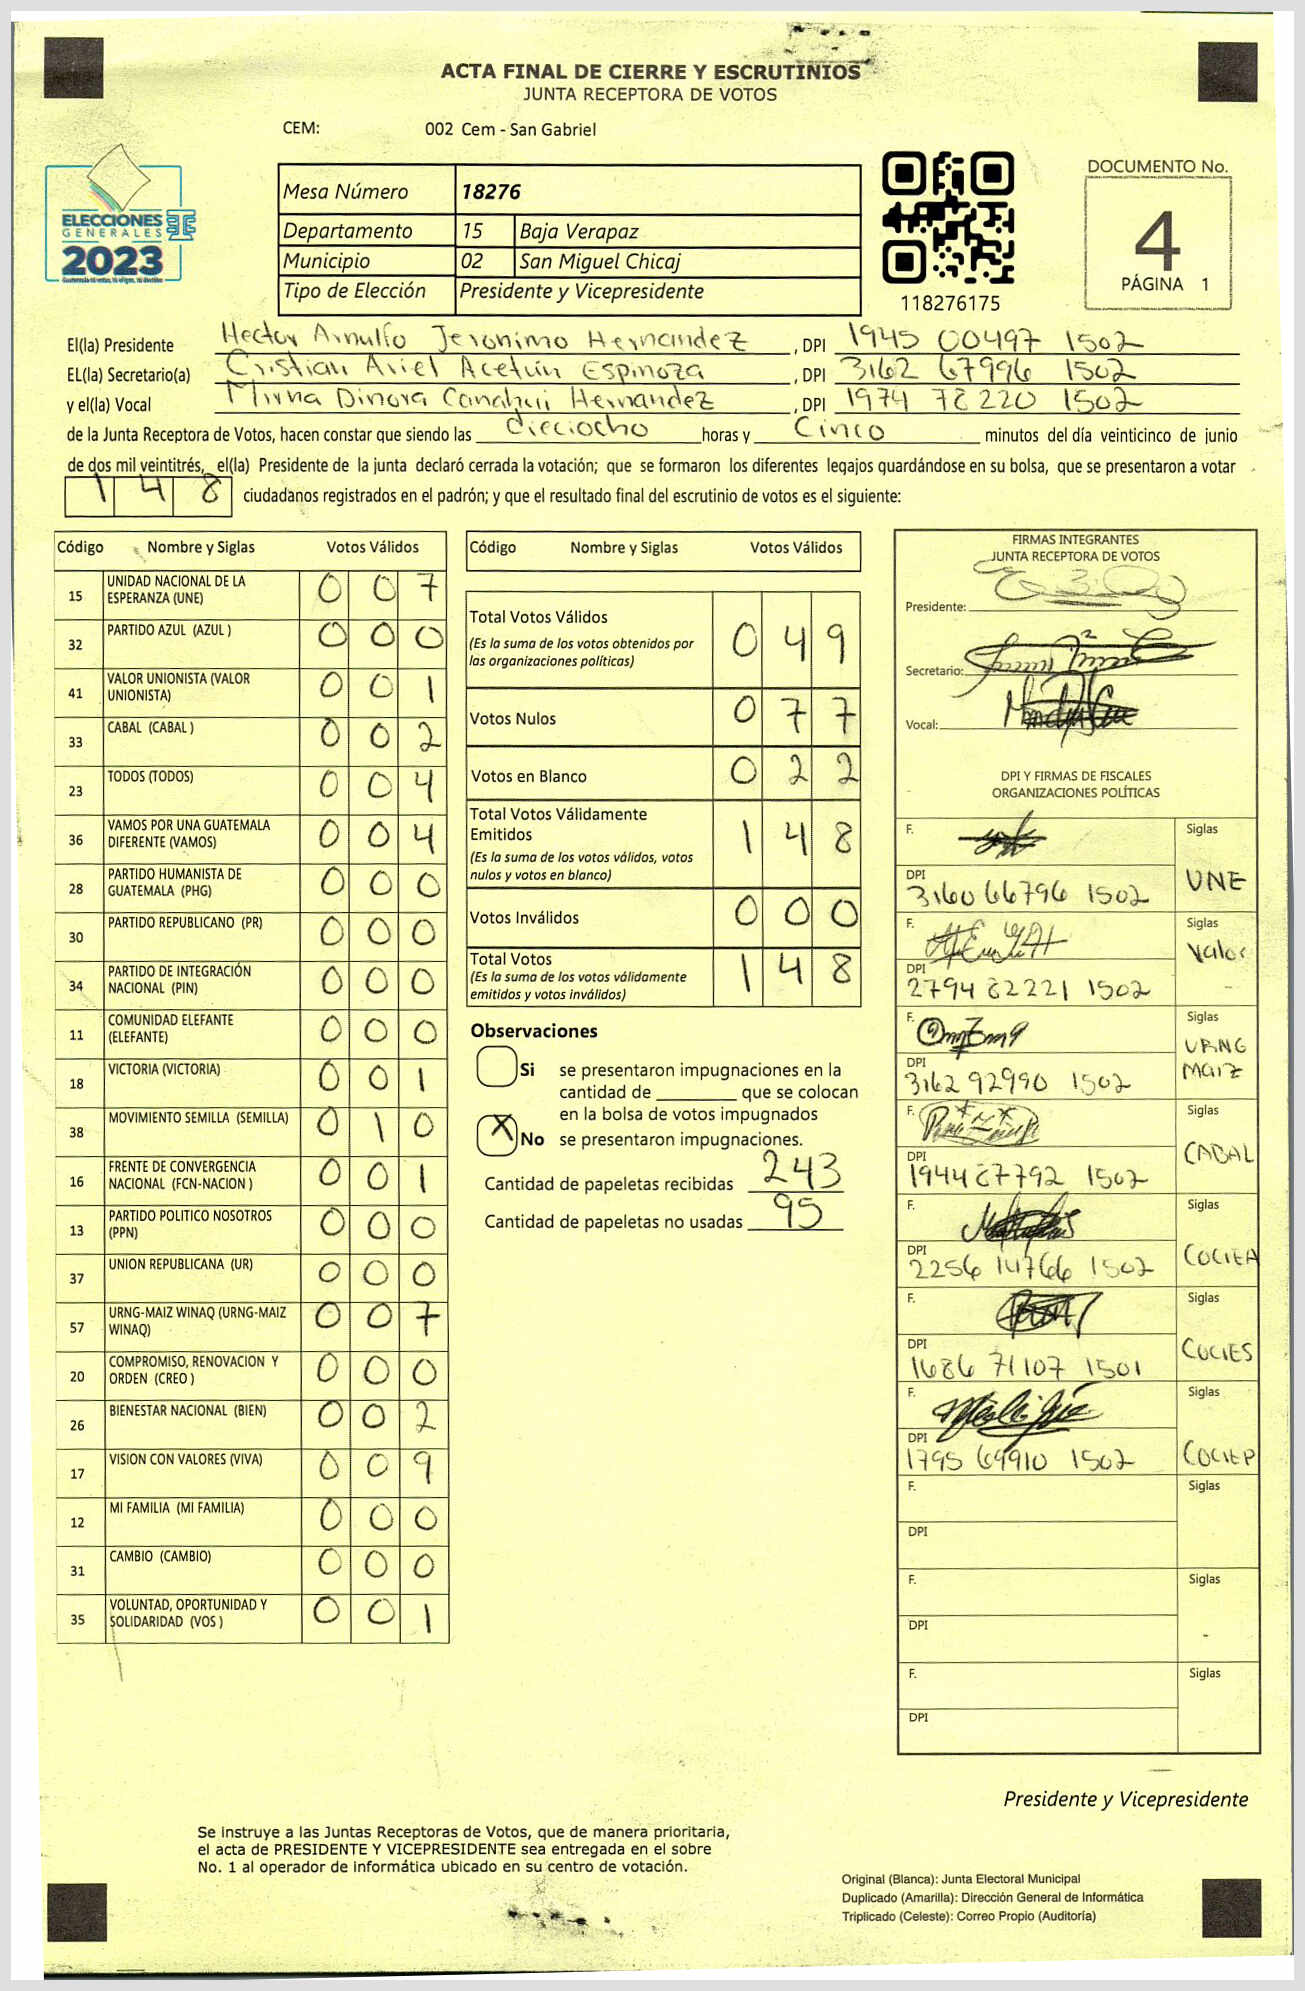 ACTA FINAL DE CIERRE Y ESCRUTINIOS
JUNTA RECEPTORA DE VOTOS
CEM: 002 Cem - San Gabriel
ELECCIONES
GENERALES
2023
Mesa Número 18276
Departamento 15 Baja Verapaz
Municipio 02 San Miguel Chicaj
Tipo de Elección Presidente y Vicepresidente
118276175
DOCUMENTO No.
4
PÁGINA 1
El(la) Presidente Hector Arnulfo Jeronimo Hernandez , DPI 1945 00497 1502
EL(la) Secretario(a) Cristian Ariel Acetún Espinoza , DPI 3162 67996 1502
y el(la) Vocal Mirna Dinora Canahui Hernandez , DPI 1974 78220 1502
de la Junta Receptora de Votos, hacen constar que siendo las dieciocho horas y Cinco minutos del día veinticinco de junio
de dos mil veintitrés, el(la) Presidente de la junta declaró cerrada la votación; que se formaron los diferentes legajos guardándose en su bolsa, que se presentaron a votar
148 ciudadanos registrados en el padrón; y que el resultado final del escrutinio de votos es el siguiente:
Código Nombre y Siglas Votos Válidos
15 UNIDAD NACIONAL DE LA ESPERANZA (UNE) 0 0 7
32 PARTIDO AZUL (AZUL ) 0 0 0
41 VALOR UNIONISTA (VALOR UNIONISTA) 0 0 1
33 CABAL (CABAL ) 0 0 2
23 TODOS (TODOS) 0 0 4
36 VAMOS POR UNA GUATEMALA DIFERENTE (VAMOS) 0 0 4
28 PARTIDO HUMANISTA DE GUATEMALA (PHG) 0 0 0
30 PARTIDO REPUBLICANO (PR) 0 0 0
34 PARTIDO DE INTEGRACIÓN NACIONAL (PIN) 0 0 0
11 COMUNIDAD ELEFANTE (ELEFANTE) 0 0 0
18 VICTORIA (VICTORIA) 0 0 1
38 MOVIMIENTO SEMILLA (SEMILLA) 0 1 0
16 FRENTE DE CONVERGENCIA NACIONAL (FCN-NACION ) 0 0 1
13 PARTIDO POLITICO NOSOTROS (PPN) 0 0 0
37 UNION REPUBLICANA (UR) 0 0 0
57 URNG-MAIZ WINAQ (URNG-MAIZ WINAQ) 0 0 7
20 COMPROMISO, RENOVACION Y ORDEN (CREO ) 0 0 0
26 BIENESTAR NACIONAL (BIEN) 0 0 2
17 VISION CON VALORES (VIVA) 0 0 9
12 MI FAMILIA (MI FAMILIA) 0 0 0
31 CAMBIO (CAMBIO) 0 0 0
35 VOLUNTAD, OPORTUNIDAD Y SOLIDARIDAD (VOS ) 0 0 1
Código Nombre y Siglas Votos Válidos
Total Votos Válidos 0 4 9
(Es la suma de los votos obtenidos por
las organizaciones políticas)
Votos Nulos 0 7 7
Votos en Blanco 0 2 2
Total Votos Válidamente
Emitidos 1 4 8
(Es la suma de los votos válidos, votos
nulos y votos en blanco)
Votos Inválidos 0 0 0
Total Votos 1 4 8
(Es la suma de los votos válidamente
emitidos y votos inválidos)
Observaciones
Si se presentaron impugnaciones en la
cantidad de ________ que se colocan
en la bolsa de votos impugnados
X No se presentaron impugnaciones.
Cantidad de papeletas recibidas 243
Cantidad de papeletas no usadas 95
FIRMAS INTEGRANTES
JUNTA RECEPTORA DE VOTOS
Presidente:
Secretario:
Vocal:
DPI Y FIRMAS DE FISCALES
ORGANIZACIONES POLÍTICAS
F. Siglas
DPI 3160 66796 1502 UNE
F. Siglas
DPI 2794 82221 1502 Valor
F. Siglas
DPI 3162 92990 1502 URNG MAIZ
F. Siglas
DPI 1944 87792 1502 CABAL
F. Siglas
DPI 2256 14766 1502 COCIEA
F. Siglas
DPI 1686 71107 1501 COCIES
F. Siglas
DPI 1795 69910 1502 COCIEP
F. Siglas
DPI
F. Siglas
DPI
F. Siglas
DPI
Presidente y Vicepresidente
Se instruye a las Juntas Receptoras de Votos, que de manera prioritaria,
el acta de PRESIDENTE Y VICEPRESIDENTE sea entregada en el sobre
No. 1 al operador de informática ubicado en su centro de votación.
Original (Blanca): Junta Electoral Municipal
Duplicado (Amarilla): Dirección General de Informática
Triplicado (Celeste): Correo Propio (Auditoría)